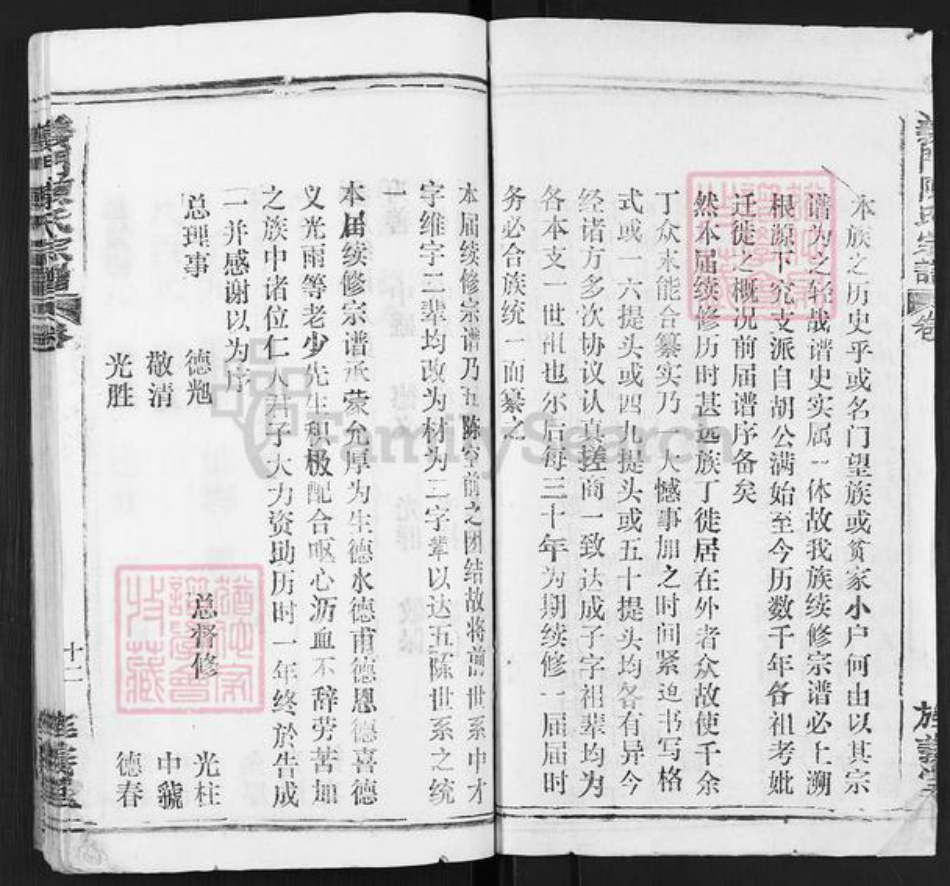 义门陈氏宗谱
卷
本族之历史乎或名门望族或贫家小户何由以其宗
谱为之轻哉谱史实属一体故我族续修宗谱必上溯
根源下究支派自胡公满始至今历数千年各祖考妣
迁徙之概况前届谱序备矣
然本届续修历时甚远族丁徙居在外者众故使千余
丁众未能合纂实乃一大憾事加之时间紧迫书写格
式或一六提头或四九提头或五十提头均各有异今
经诸方多次协议认真搓商一致达成子字祖辈均为
各本支一世祖也尔后每三十年为期续修一届届时
务必合族统一而纂之
本届续修宗谱乃五陈空前之团结故将前世系中才
字维字三辈均改为材为二字辈以达五陈世系之统
一
本届续修宗谱承蒙允厚为生德水德甫德恩德喜德
义光雨等老少先生积极配合呕心沥血不辞劳苦加
之族中诸位仁人君子大力资助历时一年终於告成
一并感谢以为序
总理事 德灺 敬清 光胜
总督修 光柱 中虢 德春
義門陳氏宗譜
卷
十二
旌義堂
FamilySearch